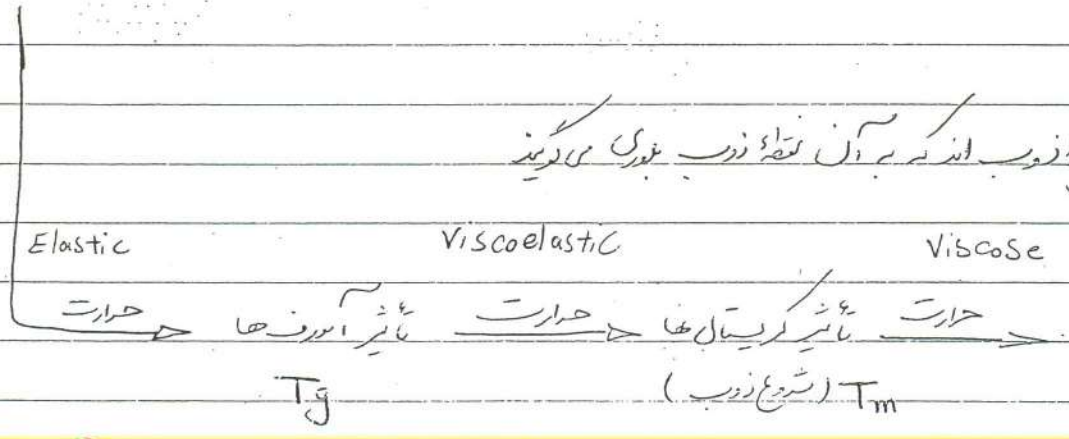 ذوب اند که به آن نقطهٔ ذوب بلوری می گویند
Elastic Viscoelastic Viscose
حرارت تأثیر آمورف ها حرارت تأثیر کریستال ها حرارت
Tg Tm (شروع ذوب)